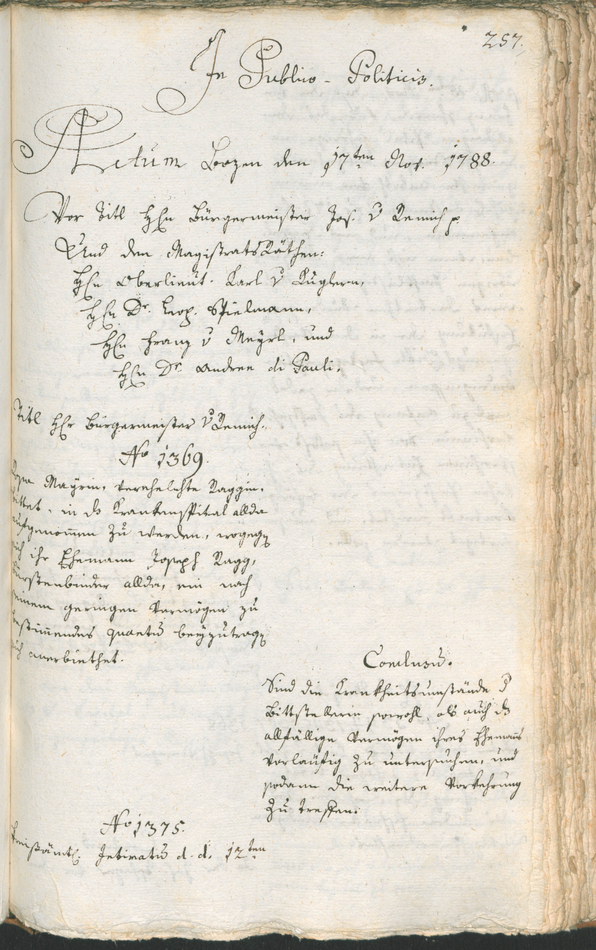 257.
In Publico-Politicis.
Actum Bozen den 17ten Nov. 1788.
Vor Titl Hhn Bürgermeister Jos. v Remich p.
Und den Magistrats Räthen:
Hhn Oberlieut. Karl v Kuglern,
Hhn Dr. Leop. Spielmann,
Hhn Franz v Mayrl, und
Hhn Dr. Andree di Pauli,
Titl Hhr Bürgermeister v Remich.
No 1369.
Mayrin, verehelichte Raggin,
bittet, in ds Krankenspital allda
aufgenommen zu werden, wogegen
sich ihr Ehemann Joseph Ragg,
Bürstenbinder allda, ein nach
seinem geringen Vermögen zu
bestimendes quantu beyzutragen
sich anerbiethet.
Conclusu.
Sind die Krankheitsumstände d
Bittstellerin sowohl, als auch ds
allfällige Vermögen ihres Ehemanns
vorläufig zu untersuchen, und
sodann die weitere Vorkehrung
zu treffen.
No 1375.
Kreisämtl. Intimatu d. d. 12ten